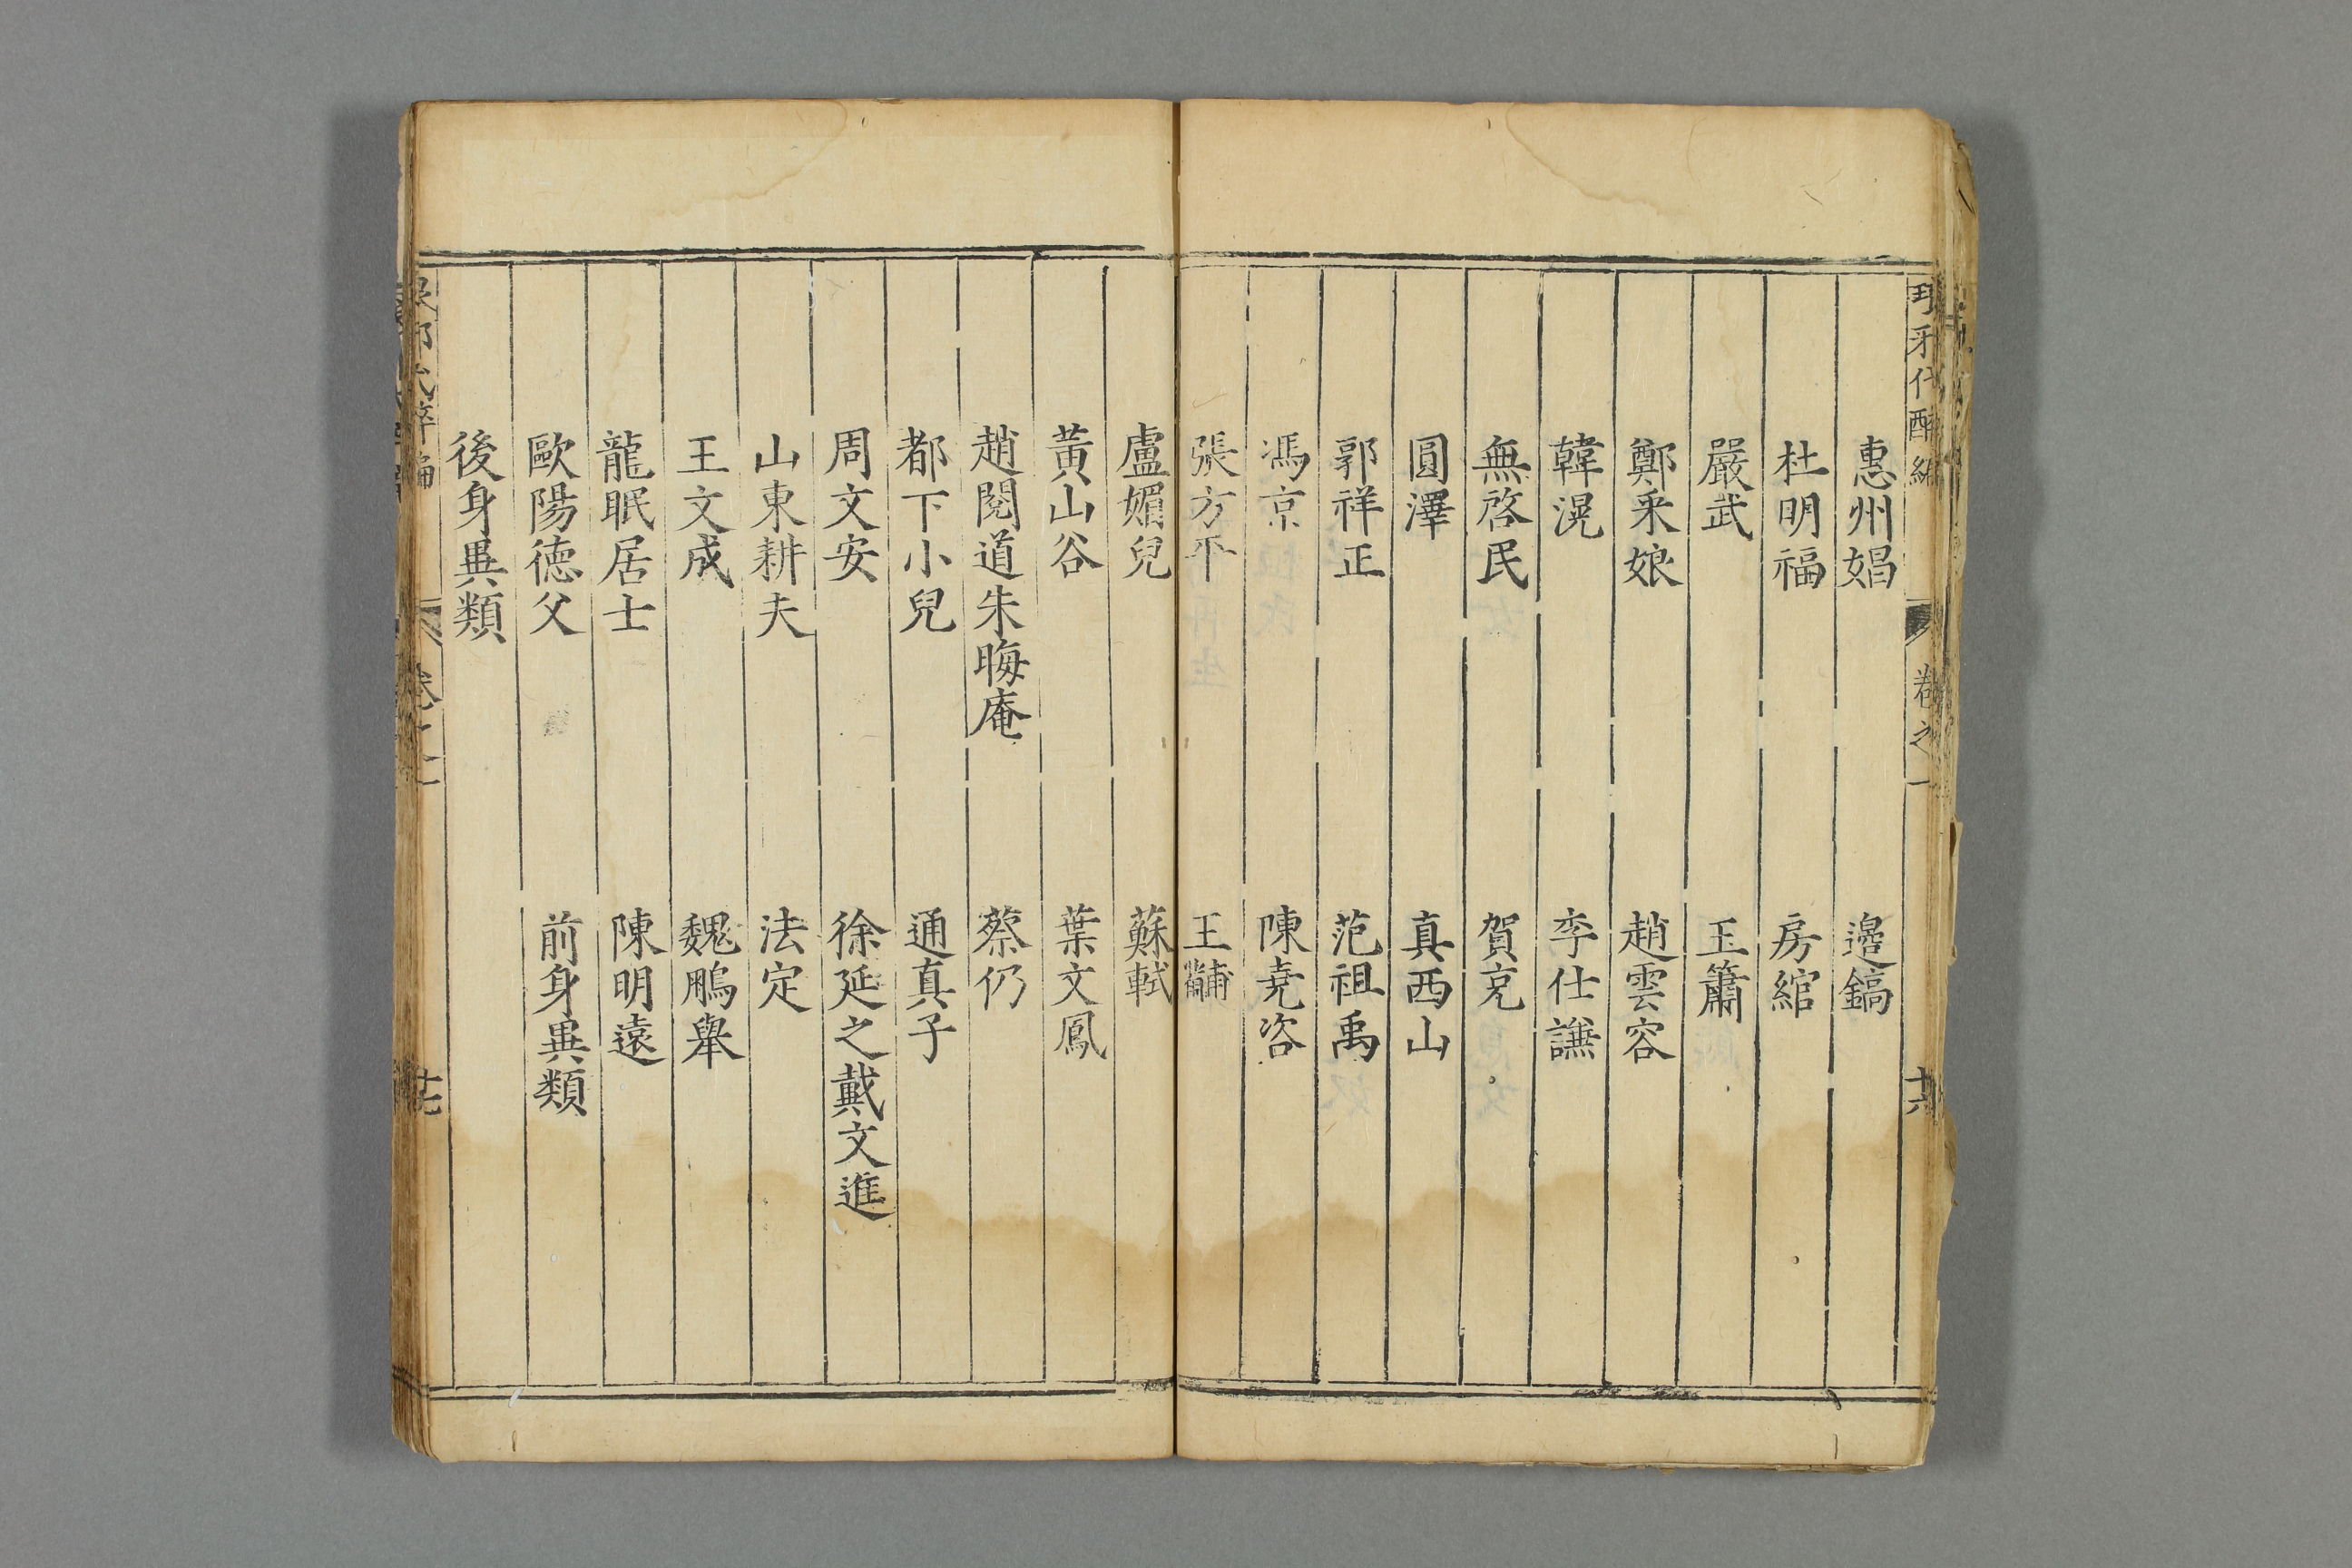 惠州娼 邉鎬
杜明福 房綰
嚴武 玉簫
鄭采娘 趙雲容
韓滉 李仕謙
無啓民 賀亮
圓澤 真西山
郭祥正 范祖禹
馮京 陳堯咨
張方平 王黼
盧媚兒 蘇軾
黃山谷 葉文鳳
趙閱道朱晦庵 蔡仍
都下小兒 通真子
周文安 徐延之戴文進
山東耕夫 法定
王文成 魏鵬舉
龍眠居士 陳明遠
歐陽德父 前身異類
後身異類
卷之一